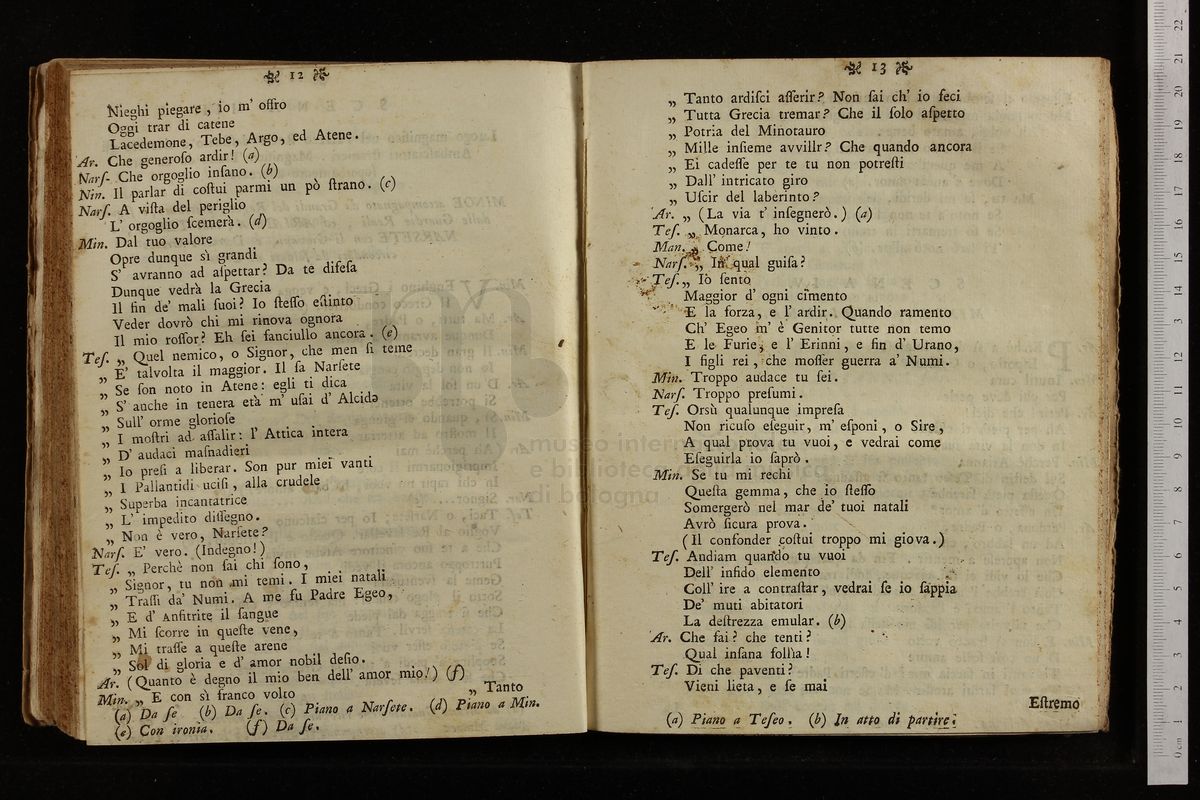 12
Nieghi piegare, io m' offro
Oggi trar di catene
Lacedemone, Tebe, Argo, ed Atene.
Ar. Che generoſo ardir! (a)
Narſ. Che orgoglio inſano. (b)
Nin. Il parlar di coſtui parmi un pò ſtrano. (c)
Narſ. A viſta del periglio
L' orgoglio ſcemerà. (d)
Min. Dal tuo valore
Opre dunque sì grandi
S' avranno ad aſpettar? Da te difeſa
Dunque vedrà la Grecia
Il fin de' mali ſuoi? Io ſteſſo eſtinto
Veder dovrò chi mi rinova ognora
Il mio roſſor? Eh ſei fanciullo ancora. (e)
Teſ. „ Quel nemico, o Signor, che men ſi teme
„ E' talvolta il maggior. Il ſa Narſete
„ Se ſon noto in Atene: egli ti dica
„ S' anche in tenera età m' uſai d' Alcide
„ Sull' orme glorioſe
„ I moſtri ad aſſalir: l' Attica intera
„ D' audaci maſnadieri
„ Io preſi a liberar. Son pur miei vanti
„ I Pallantidi ucciſi, alla crudele
„ Superba incantatrice
„ L' impedito diſſegno.
„ Non è vero, Narſete?
Narſ. E' vero. (Indegno!)
Teſ. „ Perchè non ſai chi ſono,
„ Signor, tu non mi temi. I miei natali
„ Traſſi da' Numi. A me fu Padre Egeo,
„ E d' Anfitrite il ſangue
„ Mi ſcorre in queſte vene,
„ Mi traſſe a queſte arene
„ Sol di gloria e d' amor nobil deſio.
Ar. (Quanto è degno il mio ben dell' amor mio!) (f)
Min. „ E con sì franco volto
„ Tanto
(a) Da ſe (b) Da ſe. (c) Piano a Narſete. (d) Piano a Min.
(e) Con ironia. (f) Da ſe.
13
„ Tanto ardiſci aſſerir? Non ſai ch' io feci
„ Tutta Grecia tremar? Che il ſolo aſpetto
„ Potria del Minotauro
„ Mille inſieme avvilir? Che quando ancora
„ Ei cadeſſe per te tu non potreſti
„ Dall' intricato giro
„ Uſcir del laberinto?
Ar. „ (La via t' inſegnerò.) (a)
Teſ. „ Monarca, ho vinto.
Man. „ Come!
Narſ. „ In qual guiſa?
Teſ. „ Iò ſento
Maggior d' ogni cimento
E la forza, e l' ardir. Quando ramento
Ch' Egeo m' è Genitor tutte non temo
E le Furie, e l' Erinni, e fin d' Urano,
I figli rei, che moſſer guerra a' Numi.
Min. Troppo audace tu ſei.
Narſ. Troppo preſumi.
Teſ. Orsù qualunque impreſa
Non ricuſo eſeguir, m' eſponi, o Sire,
A qual prova tu vuoi, e vedrai come
Eſeguirla io ſaprò.
Min. Se tu mi rechi
Queſta gemma, che io ſteſſo
Somergerò nel mar de' tuoi natali
Avrò ſicura prova.
(Il confonder coſtui troppo mi giova.)
Teſ. Andiam quando tu vuoi
Dell' infido elemento
Coll' ire a contraſtar, vedrai ſe io ſappia
De' muti abitatori
La deſtrezza emular. (b)
Ar. Che fai? che tenti?
Qual inſana follìa!
Teſ. Di che paventi?
Vieni lieta, e ſe mai
Eſtremo
(a) Piano a Teſeo. (b) In atto di partire.
museo internazionale
e biblioteca della musica
di bologna